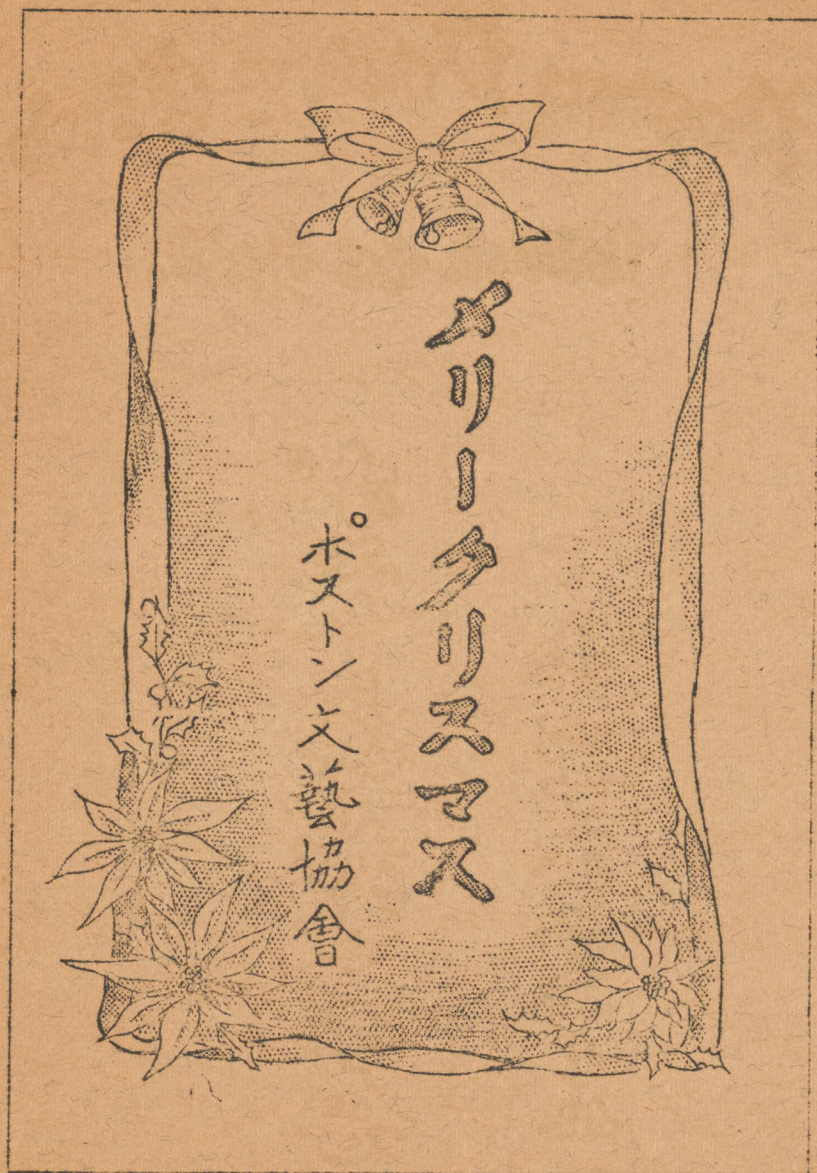 メリークリスマス
ポストン文藝協會